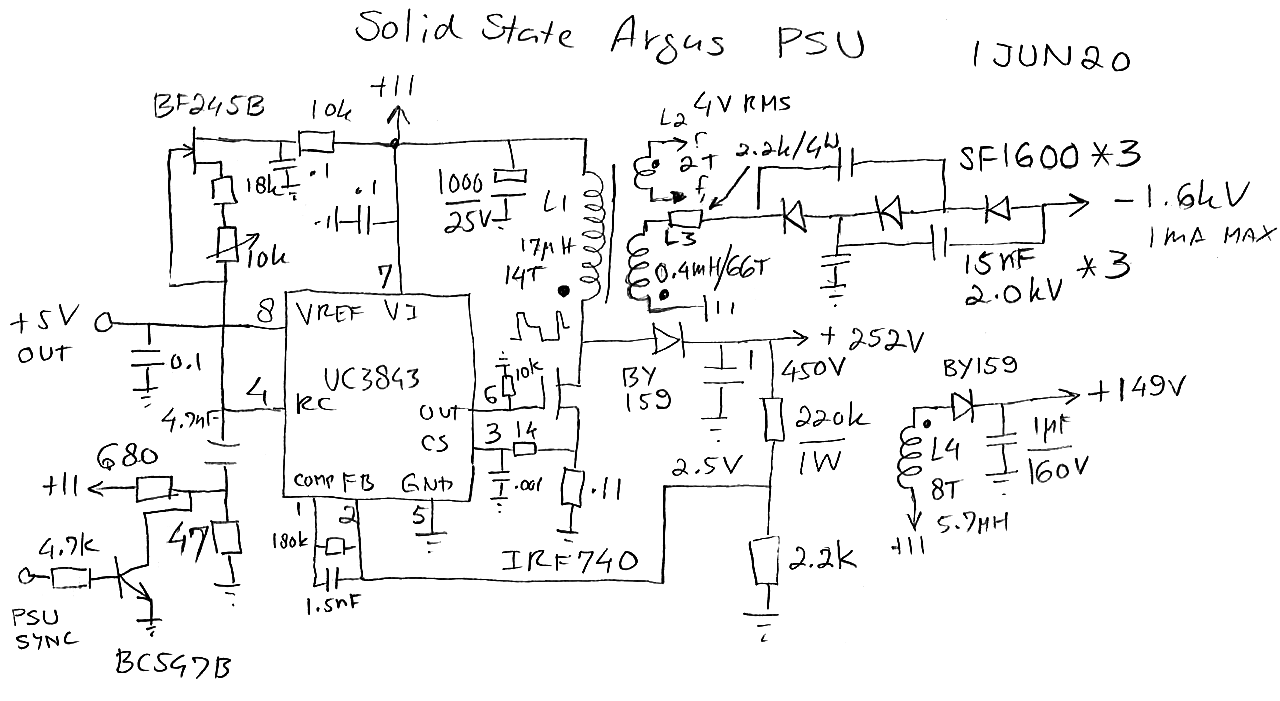 Solid State Argus PSU 1JUN20
BF245B
10k
+11
18k
.1
.1
10k
1000
25V
L1
17µH
14T
L2
4V RMS
2T
f
f,
2.2k/4W
L3
0.4mH/66T
SF1600*3
-1.6kV
1MA MAX
15nF
2.0kV
*3
+5V
OUT
0.1
8
VREF
VI
7
4
RC
UC3843
OUT
CS
COMP
FB
GND
1
2
5
6
3
10k
14
.001
.11
IRF740
BY
159
+252V
1
450V
220k
1W
2.5V
2.2k
BY159
+149V
1µF
160V
L4
8T
5.7µH
+11
4.7nF
680
+11
47
4.7K
PSU
SYNC
BC547B
180k
1.5nF